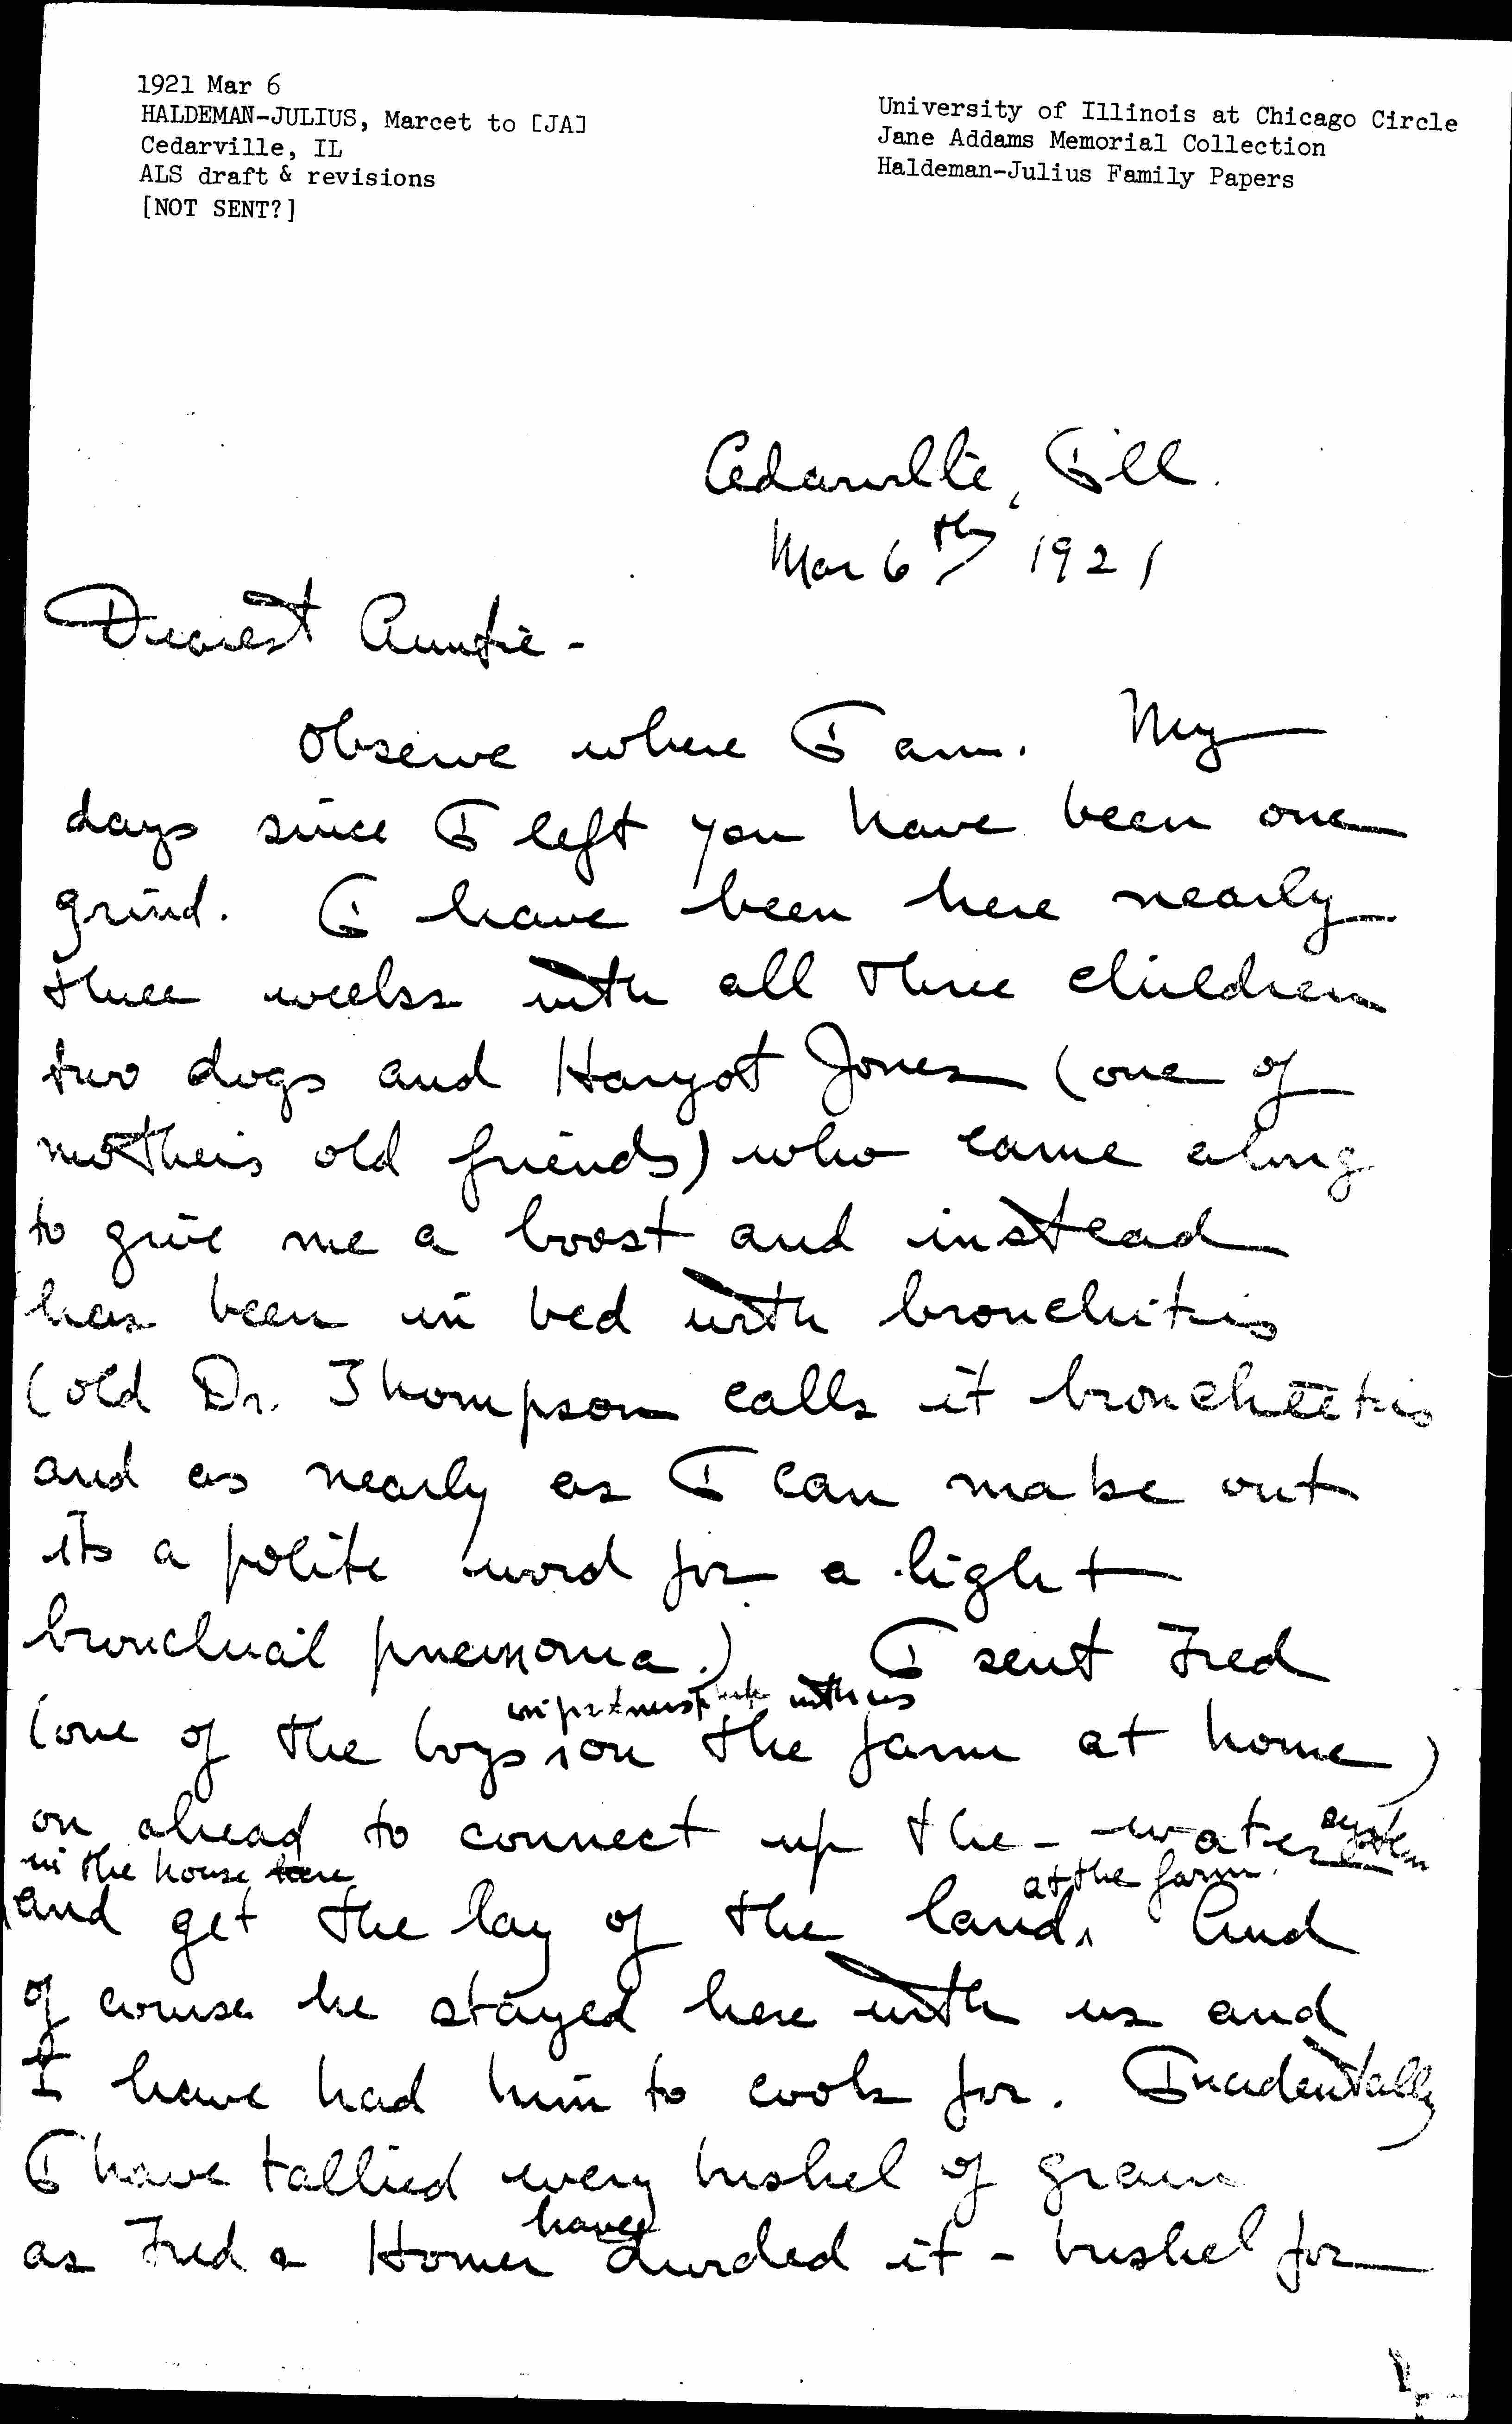 1921 Mar 6
HALDEMAN-JULIUS, Marcet to [JA]
Cedarville, IL
ALS draft & revisions
[NOT SENT?]
University of Illinois at Chicago Circle
Jane Addams Memorial Collection
Haldeman-Julius Family Papers
Cedarville, Ill.
Mar 6th 1921
Dearest Auntie -
Observe where I am. My
days since I left you have been one
grind. I have been here nearly
three weeks with all three children
two dogs and Haryot Jones (one of
mothers old friends) who came along
to give me a boost and instead
has been in bed with bronchitis
(old Dr. Thompson calls it broncheetis
and as nearly as I can make out
its a polite word for a light
bronchial pneumonia.) I sent Fred
in partnership with us
(one of the boys on the farm at home)
on ahead to connect up the - water system
in the house here at the farm.
and get the lay of the land. And
of course he stayed here with us and
I have had him to cook for. Incidentally
I have tallied every bushel of grain
have
as Fred & Homer divided it - bushel for